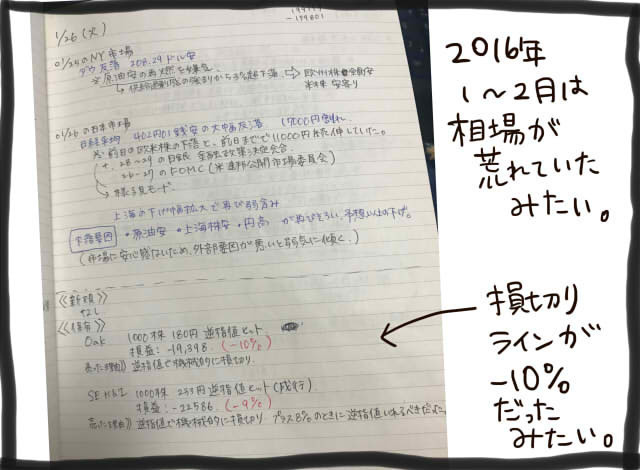 -199801
1/26 (火)
01/25のNY市場
ダウ反落 208.29ドル安
※原油安の再燃を嫌気。
→欧州株も全面安
米株 安寄り
01/26の日本市場
日経平均 402円01銭安の大幅反落 17000円割れ
※前日の欧米株の下落と、前日まで
28~29の日銀 金融政策決定会合
26~27のFOMC(米連邦公開市場委員会)
→様子見モード
上海の下げ幅拡大で再び弱含み
下落要因 ・原油安 ・上海株安 ・円高 が再びそろい、予想以上の下げ。
(市場に安心感ないため、外部要因が悪いと弱気に傾く。)
《新規》
なし
《保有》
Oak 1000株 180円 逆指値ヒット
損益:-19,398 (-10%)
売った理由》逆指値で機械的に損切り。
1000株 233円 逆指値ヒット(成行)
損益:-22586 (-9%)
売った理由》逆指値で機械的に損切り。プラス8%のときに逆指値いれるべきだった。
2016年
1~2月は
相場が
荒れていた
みたい。
損切り
ラインが
-10%
だった
みたい。